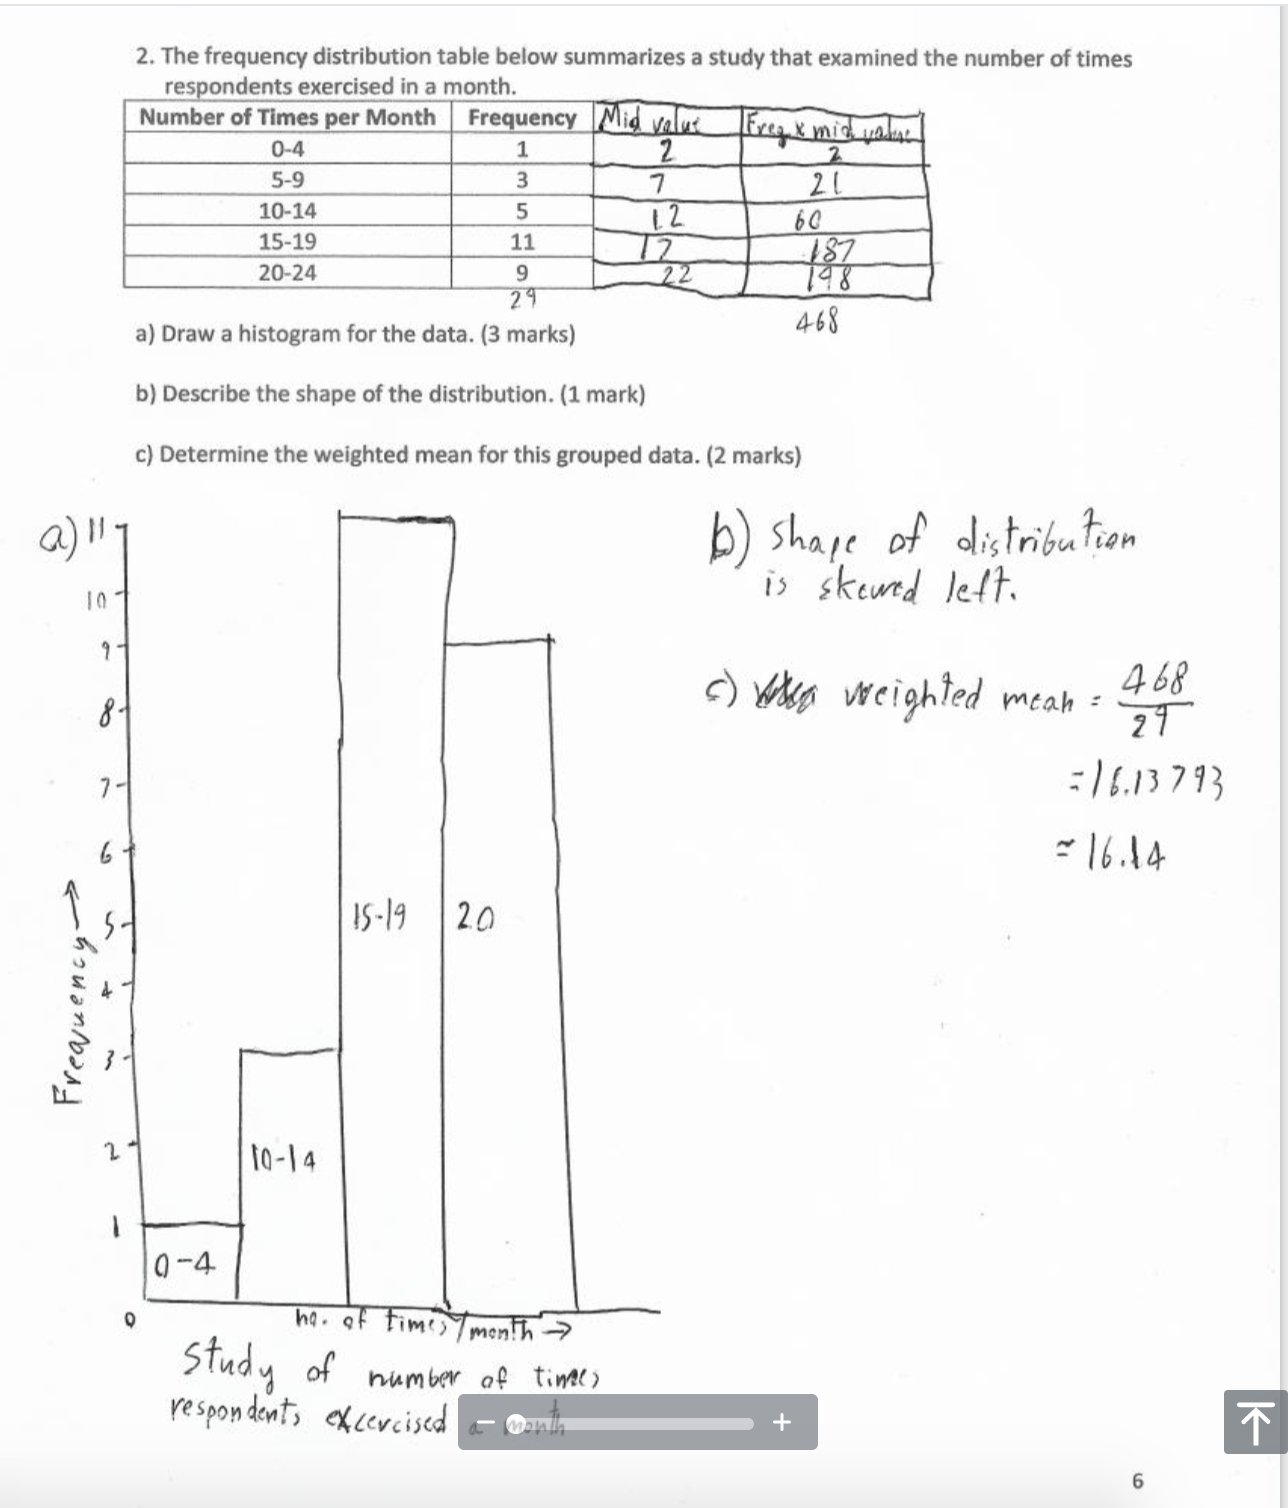 2. The frequency distribution table below summarizes a study that examined the number of times
respondents exercised in a month.
Number of Times per Month Frequency Mid value Freq x mid value
0-4 1 2 2
5-9 3 7 21
10-14 5 12 60
15-19 11 17 187
20-24 9 22 198
29 468
a) Draw a histogram for the data. (3 marks)
b) Describe the shape of the distribution. (1 mark)
c) Determine the weighted mean for this grouped data. (2 marks)
a) 11
10
9
8
7
6
5
4
3
2
1
0
Frequency →
0-4
10-14
15-19
20
no. of times/month →
Study of number of times
respondents excercised a month
b) shape of distribution
is skewed left.
c) weighted mean = 468
29
=16.13793
≈ 16.14
6